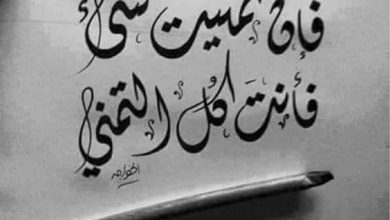 فإن تمنيت شيئاً
فأنتَ كُل التمني